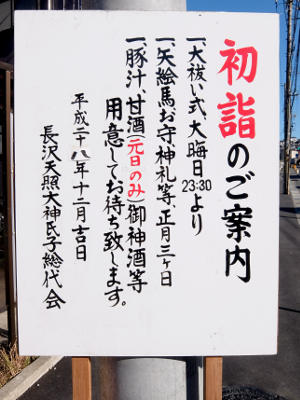 初詣のご案内
一、大祓い式、大晦日23:30より
一、矢絵馬お守神礼等、正月三ヶ日
一、豚汁、甘酒(元日のみ)御神酒等
用意してお待ち致します。
平成二十八年十二月吉日
長沢天照大神氏子総代会